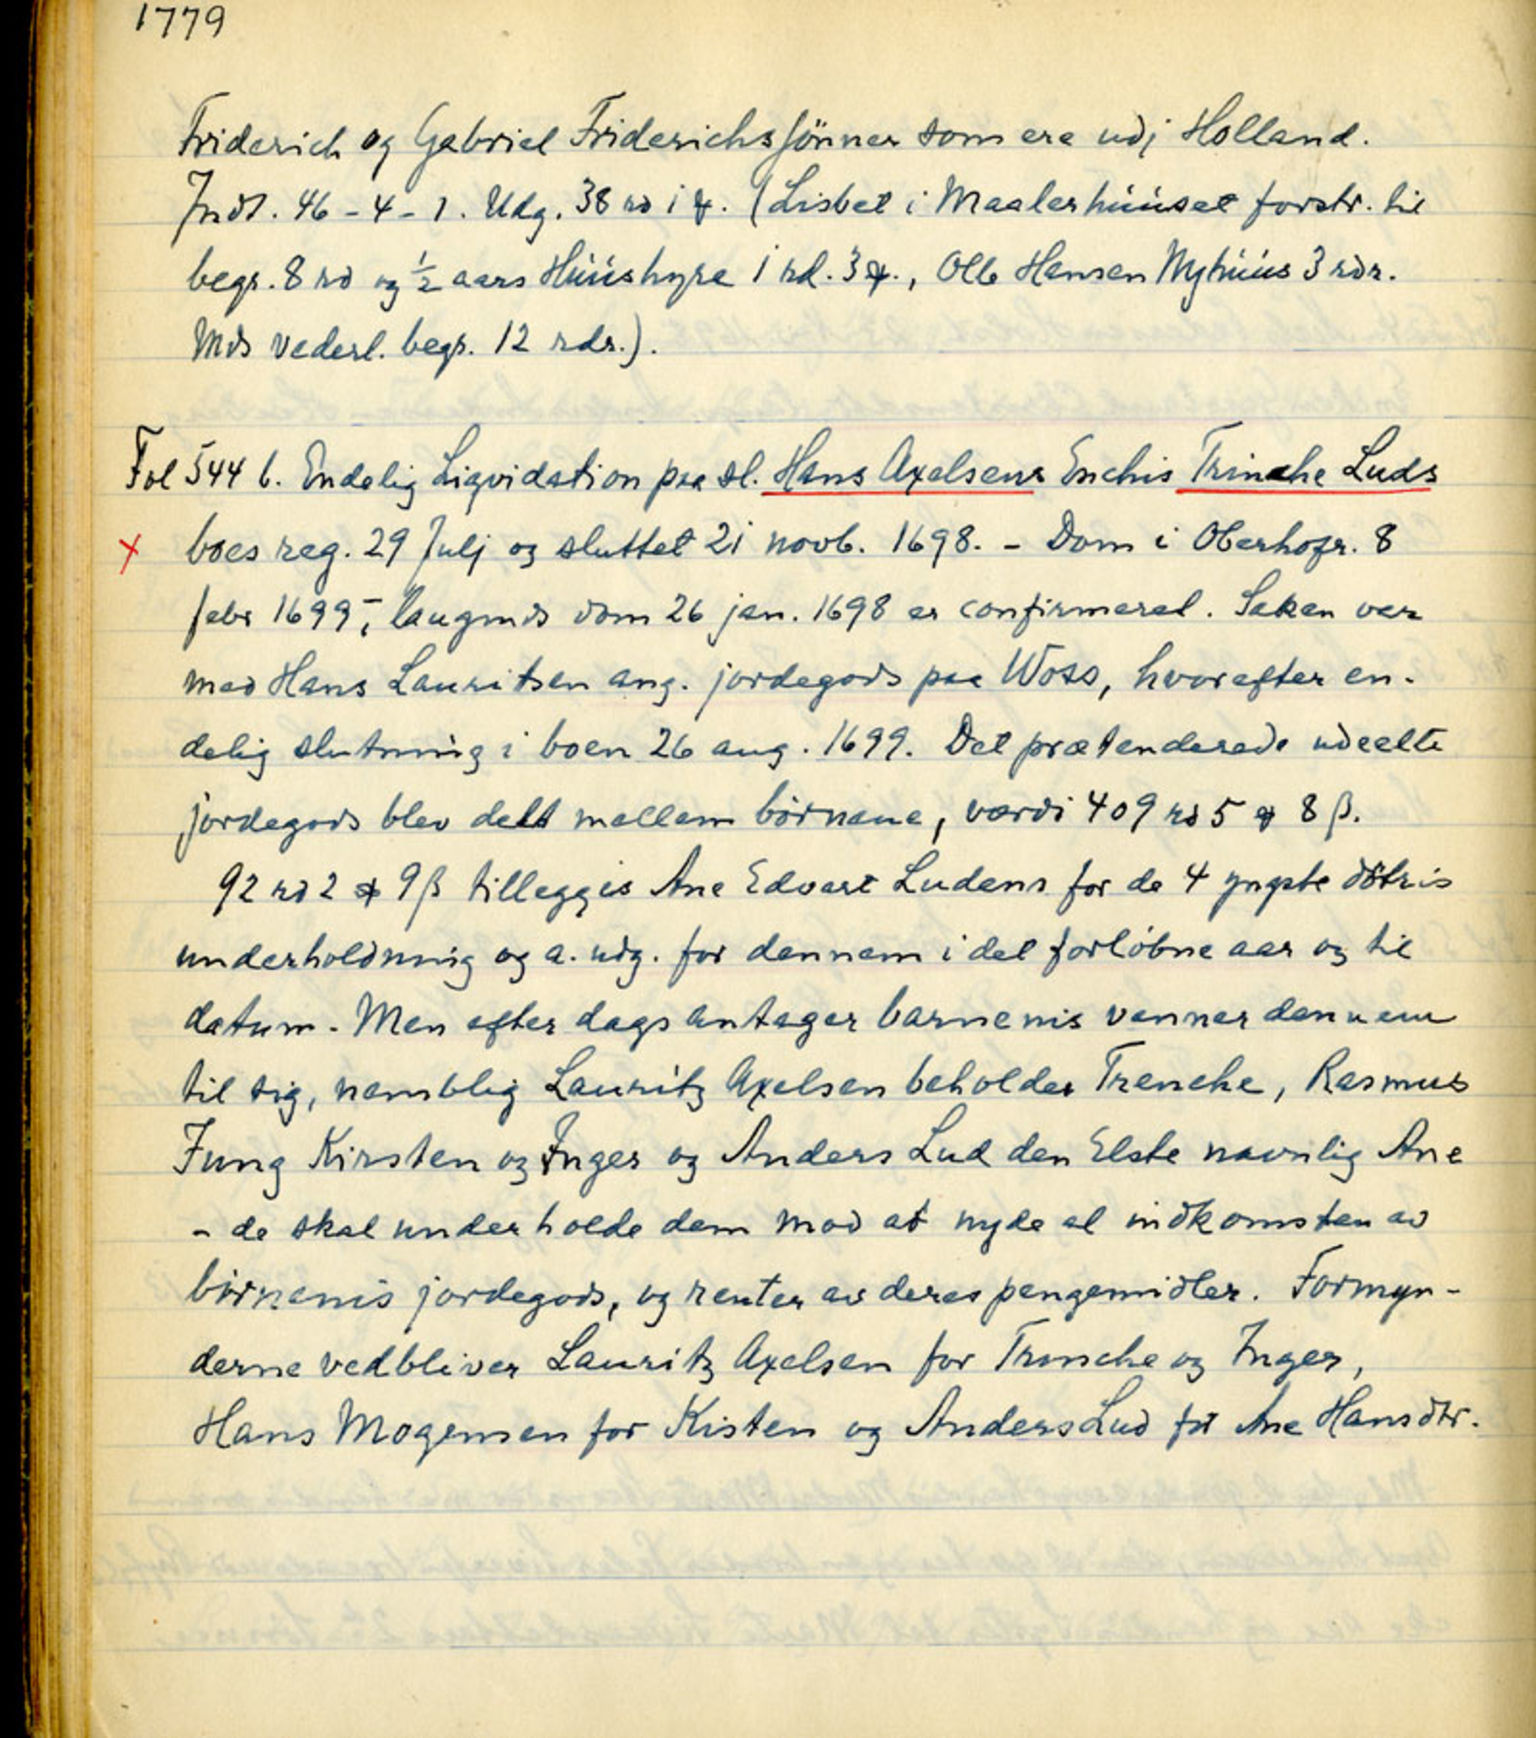 1779
Friderich og Gabriel Friderichssönner som ere udj Holland.
Indt. 46-4-1. Udg. 38 rd 1 ℳ. (Lisbet i Maalerhúúset forstr. til
begr. 8 rd og ½ aars Húúshyre 1 rd. 3 ℳ., Olle Hansen Nyhúús 3 rdr.
Mds vederl. begr. 12 rdr.).
Fol 544 b. Endelig Liqvidation paa sl. Hans Axelsens Enchis Trinche Luds
x boes reg. 29 Julj og sluttet 21 novb. 1698. - Dom i Oberhofr. 8
febr 1699, laugmds dom 26 jan. 1698 er confirmeret. Saken var
med Hans Lauritsen ang. jordegods paa Woss, hvorefter en-
delig slutning i boen 26 aug. 1699. Det prætenderede udeelte
jordegods blev delt mellem börnene, værdi 409 rd 5 ℳ 8 β.
92 rd 2 ℳ 9 β tilleggis Ane Edvart Ludens for de 4 yngste döttris
underholdning og a. udg. for dennem i det forløbne aar og til
datum. Men efter dags antager barnenis venner dennem
til sig, namblig Lauritz Axelsen beholder Trenche, Rasmus
Jung Kirsten og Inger og Anders Lud den Elste navnlig Ane
- de skal underholde dem mod at nyde al indkomsten av
börnenis jordegods, og renter av deres pengemidler. Formyn-
derne vedbliver Lauritz Axelsen for Trinche og Inger,
Hans Mogensen for Kisten og Anders Lud for Ane Hansdtr.